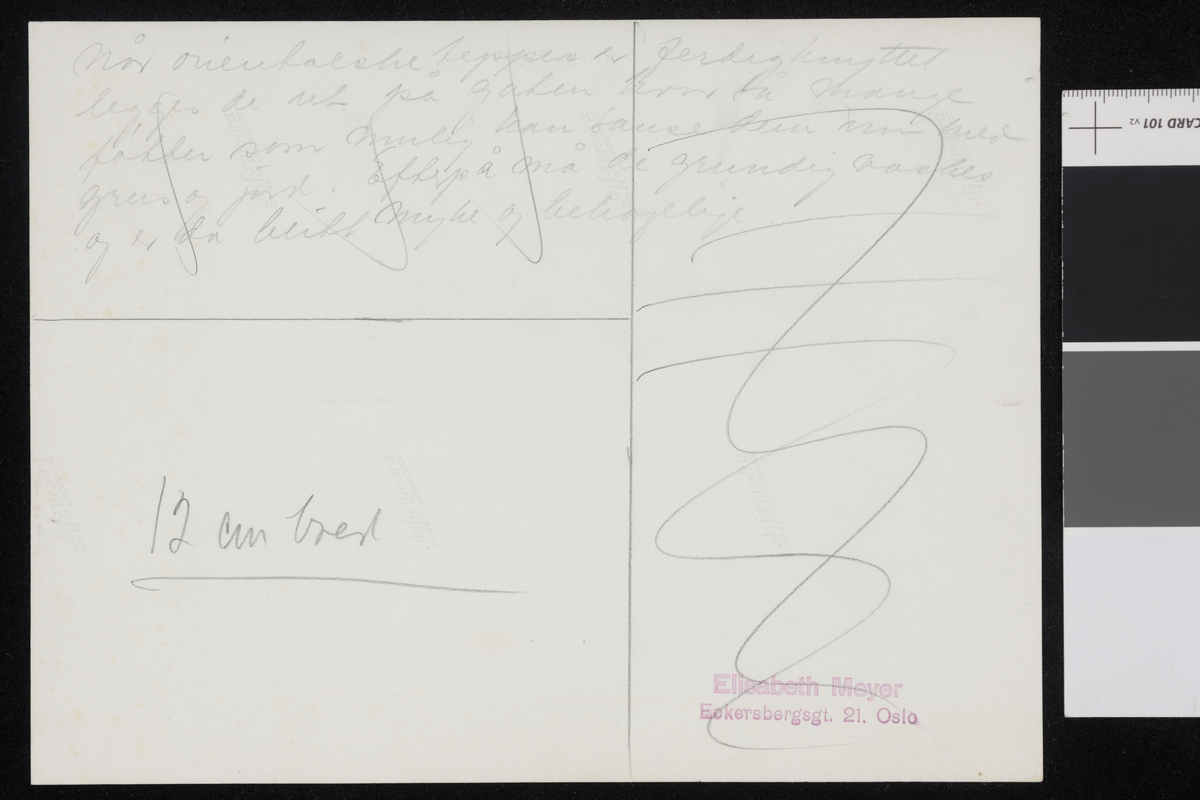 Når orientalske tepper er ferdigknyttet
legges de ut på gaten hvor så mange
føtter som mulig kan danse dem inn med
grus og jord. Efterpå må de grundig vaskes
og er da blitt myke og behagelige.
12 cm bred
Elisabeth Meyer
Eckersbergsgt. 21. Oslo
CARD 101 v2